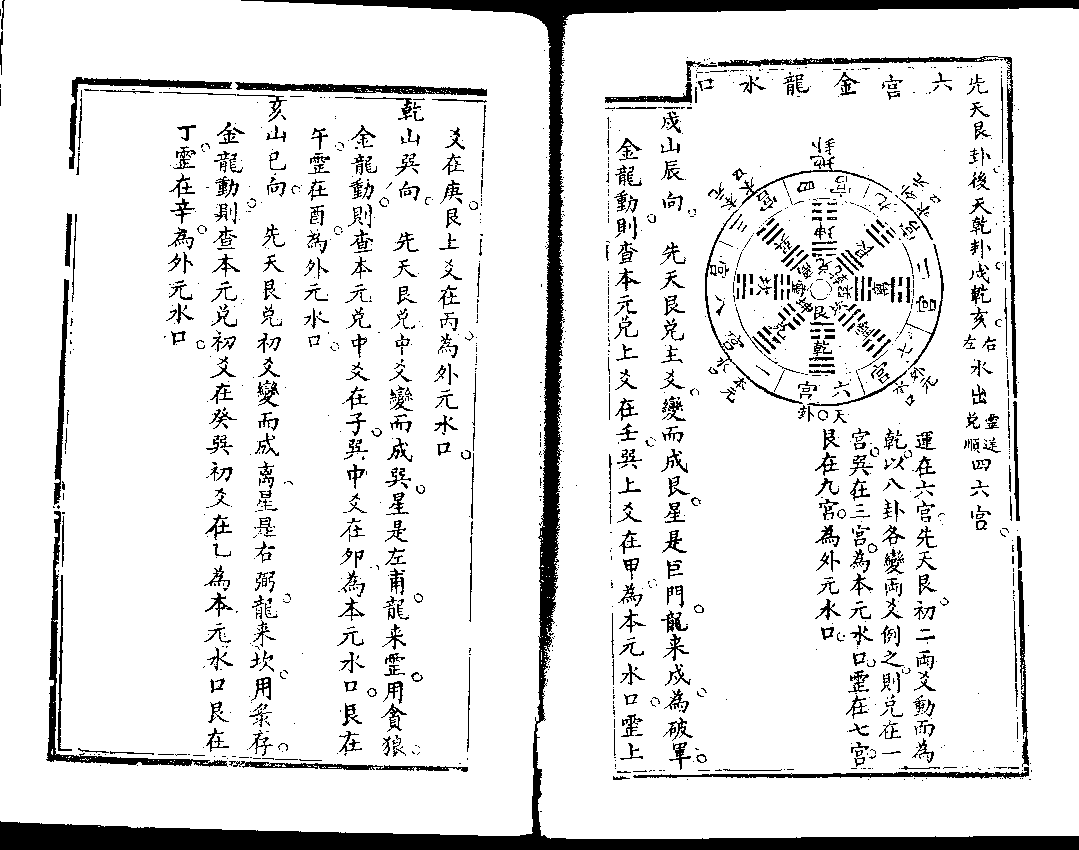 先天艮卦後天乾卦戌乾亥右左水出靈逆兌順四六宮
六宮金龍水口
地卦
四宮
九宮
外元水口
二宮
七宮
外元水口
六宮
天卦
一宮
本元水口
八宮
三宮
本元水口
坤
乾
艮
運在六宮先天艮初二兩爻動而為
乾以八卦各變兩爻例之則兌在一
宮巽在三宮為本元水口靈在七宮
艮在九宮為外元水口
戌山辰向 先天艮兌主爻變而成艮星是巨門龍来戌為破軍
金龍動則查本元兌上爻在壬巽上爻在甲為本元水口靈上
爻在庚艮上爻在丙為外元水口
乾山巽向 先天艮兌中爻變而成巽星是左甫龍来靈用貪狼
金龍動則查本元兌中爻在子巽中爻在卯為本元水口艮在
午靈在酉為外元水口
亥山巳向 先天艮兌初爻變而成离星是右弼龍来坎用彖存
金龍動則查本元兌初爻在癸巽初爻在乙為本元水口艮在
丁靈在辛為外元水口